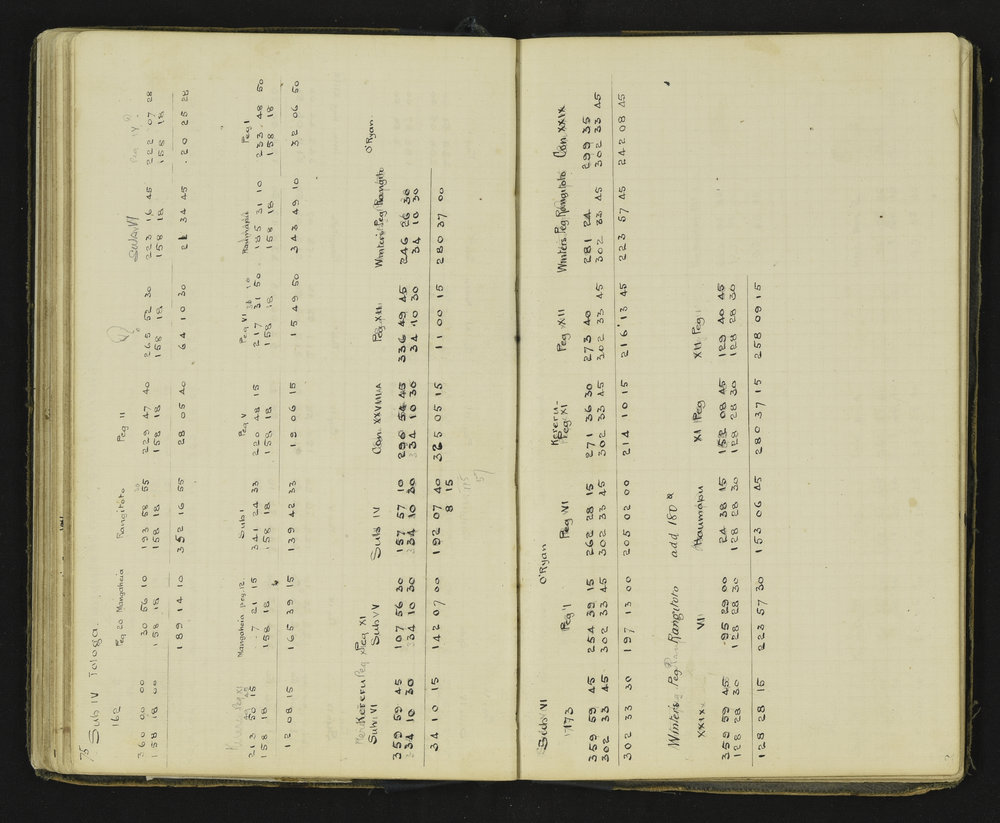 75 Sub IV Tologa.
162 Peg 20 Mangaheia Rangitoto Peg 11 Subs VI Peg IV
360 00 00 30 56 10 193 58 55 229 47 40 265 52 30 223 16 45 222 07 28
158 18 00 158 18 158 18 158 18 158 18 158 18 158 18
189 14 10 352 16 55 28 05 40 64 10 30 21 34 45 20 25 28
Peg XI Mangaheia peg. 12. Sub I Peg V Peg VI Haumapu Peg 1
213 50 15 7 21 15 341 24 33 220 48 15 217 31 50 185 31 10 233 48 50
158 18 158 18 158 18 158 18 158 18 158 18 158 18
12 08 15 165 39 15 139 42 33 19 06 15 15 49 50 343 49 10 32 06 50
Kereru Peg XI
Sub VI Sub V Subs IV Con XXVIIIA Peg XII Winters Peg Rangito O'Ryan
359 59 45 107 56 30 157 57 10 290 54 45 336 49 45 246 26 30
34 10 30 34 10 30 34 10 30 34 10 30 34 10 30 34 10 30
34 10 15 142 07 00 192 07 40 325 05 15 11 00 15 280 37 00
8 15
115
57
Subs VI O'Ryan Kereru-
173 Peg 1 Peg VI Peg XI Peg XII Winters Peg Rangitoto Con XXIX
359 59 45 254 39 15 262 28 15 271 36 30 273 40 281 24 299 35
302 33 45 302 33 45 302 33 45 302 33 45 302 33 45 302 33 45 302 33 45
302 33 30 197 13 00 205 02 00 214 10 15 216 13 45 223 57 45 242 08 45
Winters Peg Rangitoto add 180°
XXIX VII Haumapu XI Peg XII Peg
359 59 45 95 29 00 24 38 15 152 08 45 129 40 45
128 28 30 128 28 30 128 28 30 128 28 30 128 28 30
128 28 15 223 57 30 153 06 45 280 37 15 258 09 15